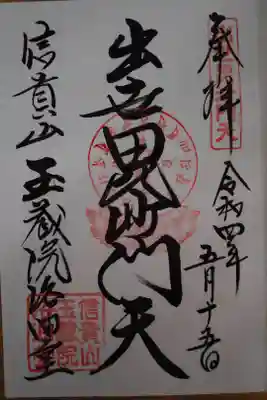 奉拝
令和四年
五月十五日
出世毘沙門天
信貴山
玉蔵院浴油堂
信貴山
玉蔵院